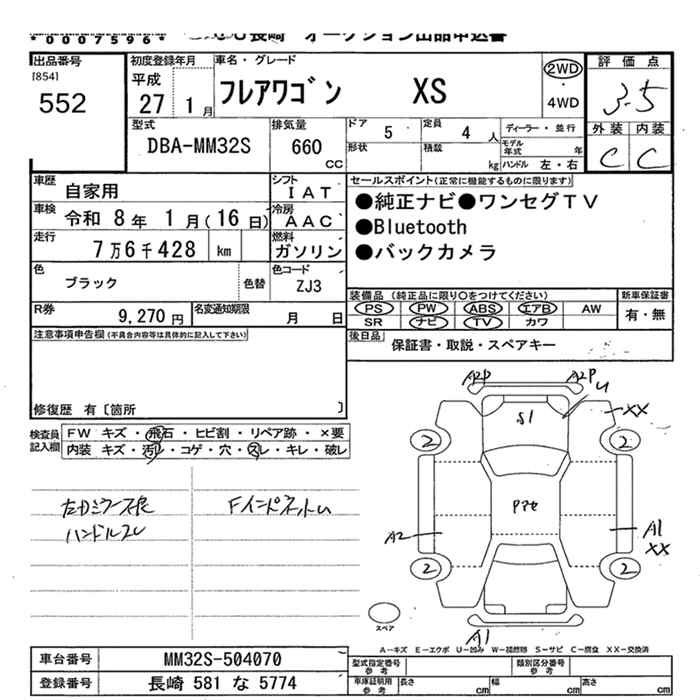 *0007596*
長崎 オークション出品申込書
出品番号
[854]
552
初度登録年月
平成
27 1 月
車名・グレード
フレアワゴン XS
2WD
・
4WD
評価点
3.5
外装 内装
C C
型式
DBA-MM32S
排気量
660
CC
ドア 5
定員 4 人
形状
積載 kg
ディーラー・並行
モデル年式 年
ハンドル 左・右
車歴 自家用
シフト IAT
車検 令和 8年 1月(16日)
冷房 AAC
走行 7万6千428 km
燃料 ガソリン
色 ブラック
色替
色コード ZJ3
R券 9,270円
名変通知期限 月 日
セールスポイント(正常に機能するものに限ります)
●純正ナビ●ワンセグTV
●Bluetooth
●バックカメラ
装備品(純正品に限り○をつけてください)
PS PW ABS エアB AW
SR ナビ TV カワ
新車保証書
有・無
後日品 保証書・取説・スペアキー
注意事項申告欄(不具合内容等は具体的に記入して下さい)
修復歴 有〔箇所 〕
検査員記入欄
FW キズ・飛石・ヒビ割・リペア跡・×要
内装 キズ・汚レ・コゲ・穴・スレ・キレ・破レ
ハンドルスレ
A2P A2P
U
S1
XX
2 2
Pアセ
A2
A1
XX
2 2
A1
スペア
A-キズ E-エクボ U-凹み W-補修跡 S-サビ C-腐食 XX-交換済
車台番号 MM32S-504070
登録番号 長崎 581 な 5774
型式指定番号
参考
類別区分番号
参考
車庫証明用
参考
長さ cm
幅 cm
高さ cm